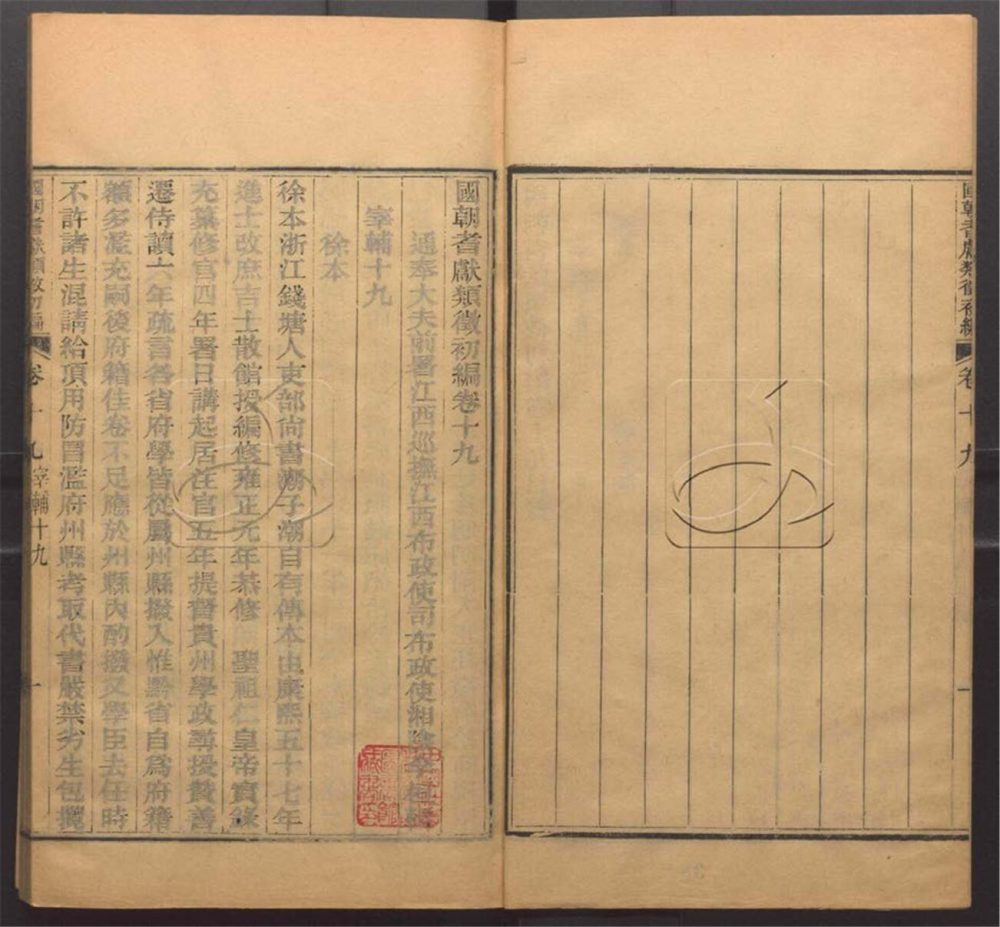 國朝耆獻類徵初編
卷十九
一
國朝耆獻類徵初編卷十九
通奉大夫前署江西巡撫江西布政使司布政使湘陰李桓輯
宰輔十九
徐本
徐本浙江錢塘人吏部尚書潮子潮自有傳本由康熙五十七年
進士改庶吉士散館授編修雍正元年恭修 聖祖仁皇帝實錄
充纂修官四年署日講起居注官五年提督貴州學政尋授贊善
遷侍讀六年疏言各省府學皆從屬州縣撥入惟黔省自為府籍
額多濫充嗣後府籍佳卷不足應於州縣內酌撥又學臣去任時
不許諸生混請給頂用防冒濫府州縣考取代書嚴禁劣生包攬
國朝耆獻類徵初編
卷十九
宰輔十九
一